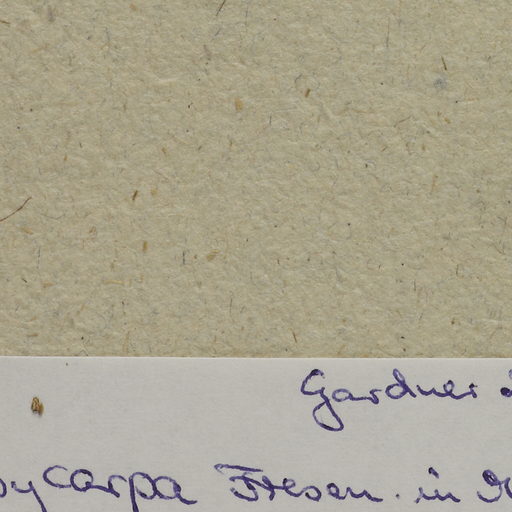 Gardner
ycarpa Fresen. in